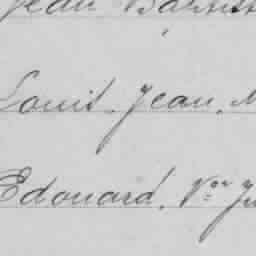 Jean Baptist
Louis Jean, M
Edouard, Vor Ju